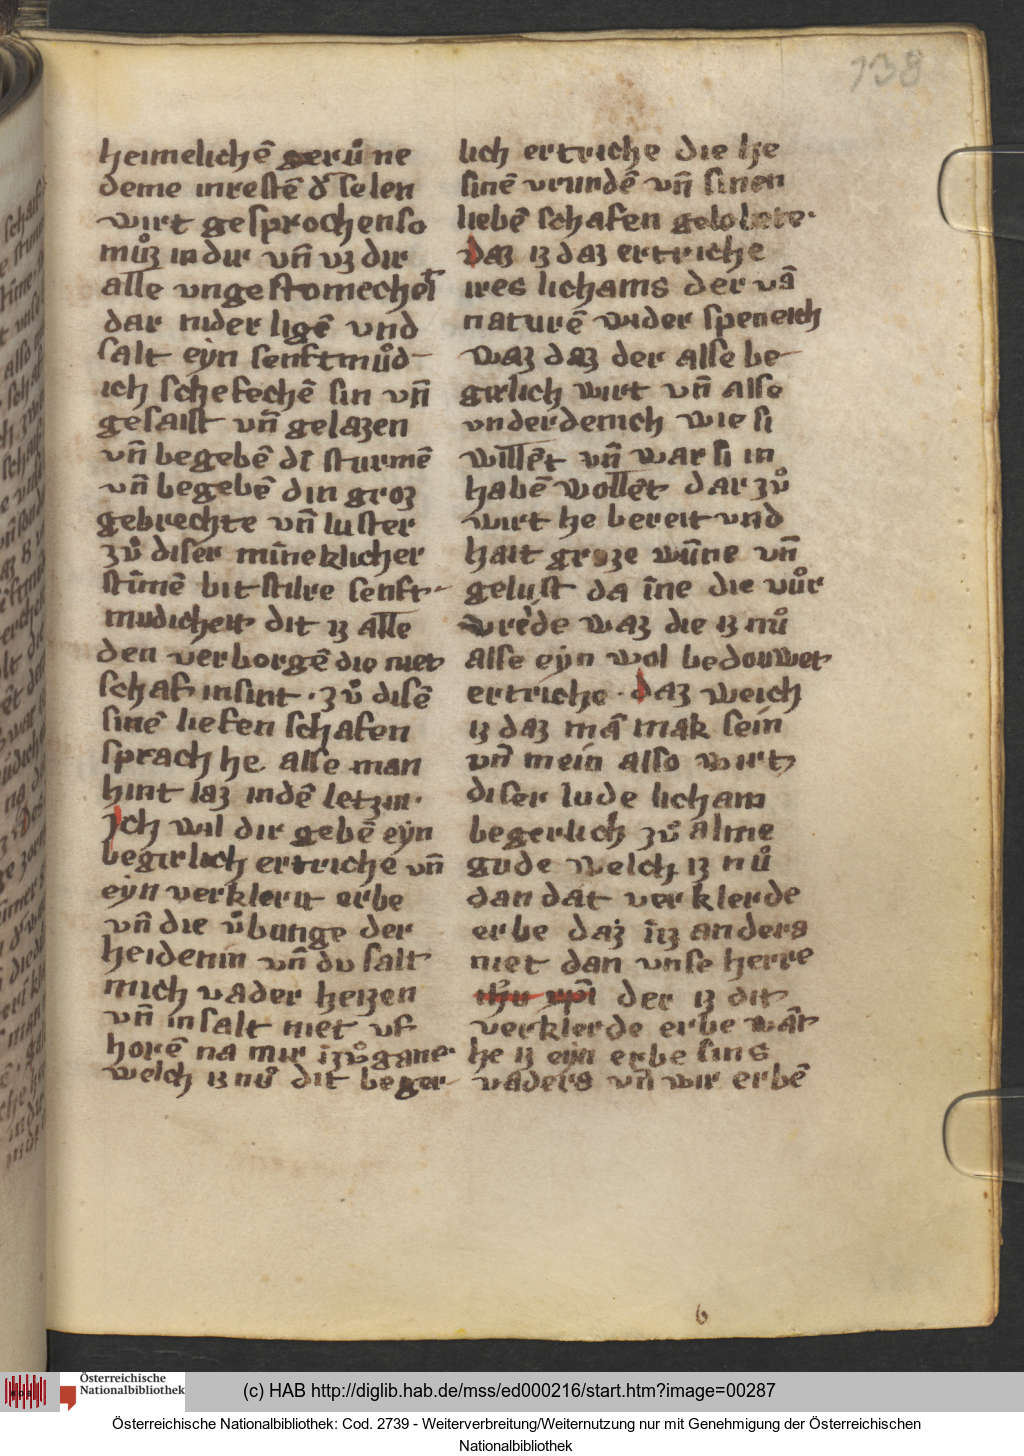 138
heimelichē gerůne
deme inrestē d᷑ selen
wirt gesprochen so
můz in dir vn̄ vz dir
alle vngestomechei᷑
dar nider ligē vnd
salt eyn senftmůd-
ich schefechē sin vn̄
gesaist vn̄ gelazen
vn̄ begebē dī sturmē
vn̄ begebē din groz
gebrechte vn̄ luster
zů diser mīneklicher
stīmē bit stilre senft-
mudicheit dit iz alle
den verborgē die niet
schaf insint · zů disē
sinē liefen schafen
sprach he alse man
hint laz indē letzin·
Ich wil dir gebē eyn
begirlich ertriche vn̄
eyn verklerit erbe
vn̄ die ůbunge der
heidenin vn̄ du salt
mich vader heizen
vn̄ in salt niet vf
horē na mir īzůgane·
welch iz nů dit beger-
lich ertriche die he
sinē vrundē vn̄ sinen
liebē schafen gelobete·
daz iz daz ertriche
ires lichams der vā
naturē wider speneich
waz daz der alse be-
girlich wirt vn̄ alse
vnderdenich wie si
willēt vn̄ war si in
habē wollēt dar zů
wirt he bereit vnd
hait groze wūne vn̄
gelust da īne die vůr
vrede waz die iz nů
alse eyn wol bedouwet
ertriche · daz weich
iz daz mā mak sein
vn̄ mein also wirt
diser lude licham
begerlich zů alme
gude welch iz nů
dan dat verklerde
erbe daz īiz anders
niet dan vnse herre
ihū xp̄i der iz dit
verklerde erbe wā᷑
he iz eyn erbe sins
vaders vn̄ wir erbē
6
Österreichische
Nationalbibliothek
(c) HAB http://diglib.hab.de/mss/ed000216/start.htm?image=00287
Österreichische Nationalbibliothek: Cod. 2739 - Weiterverbreitung/Weiternutzung nur mit Genehmigung der Österreichischen
Nationalbibliothek